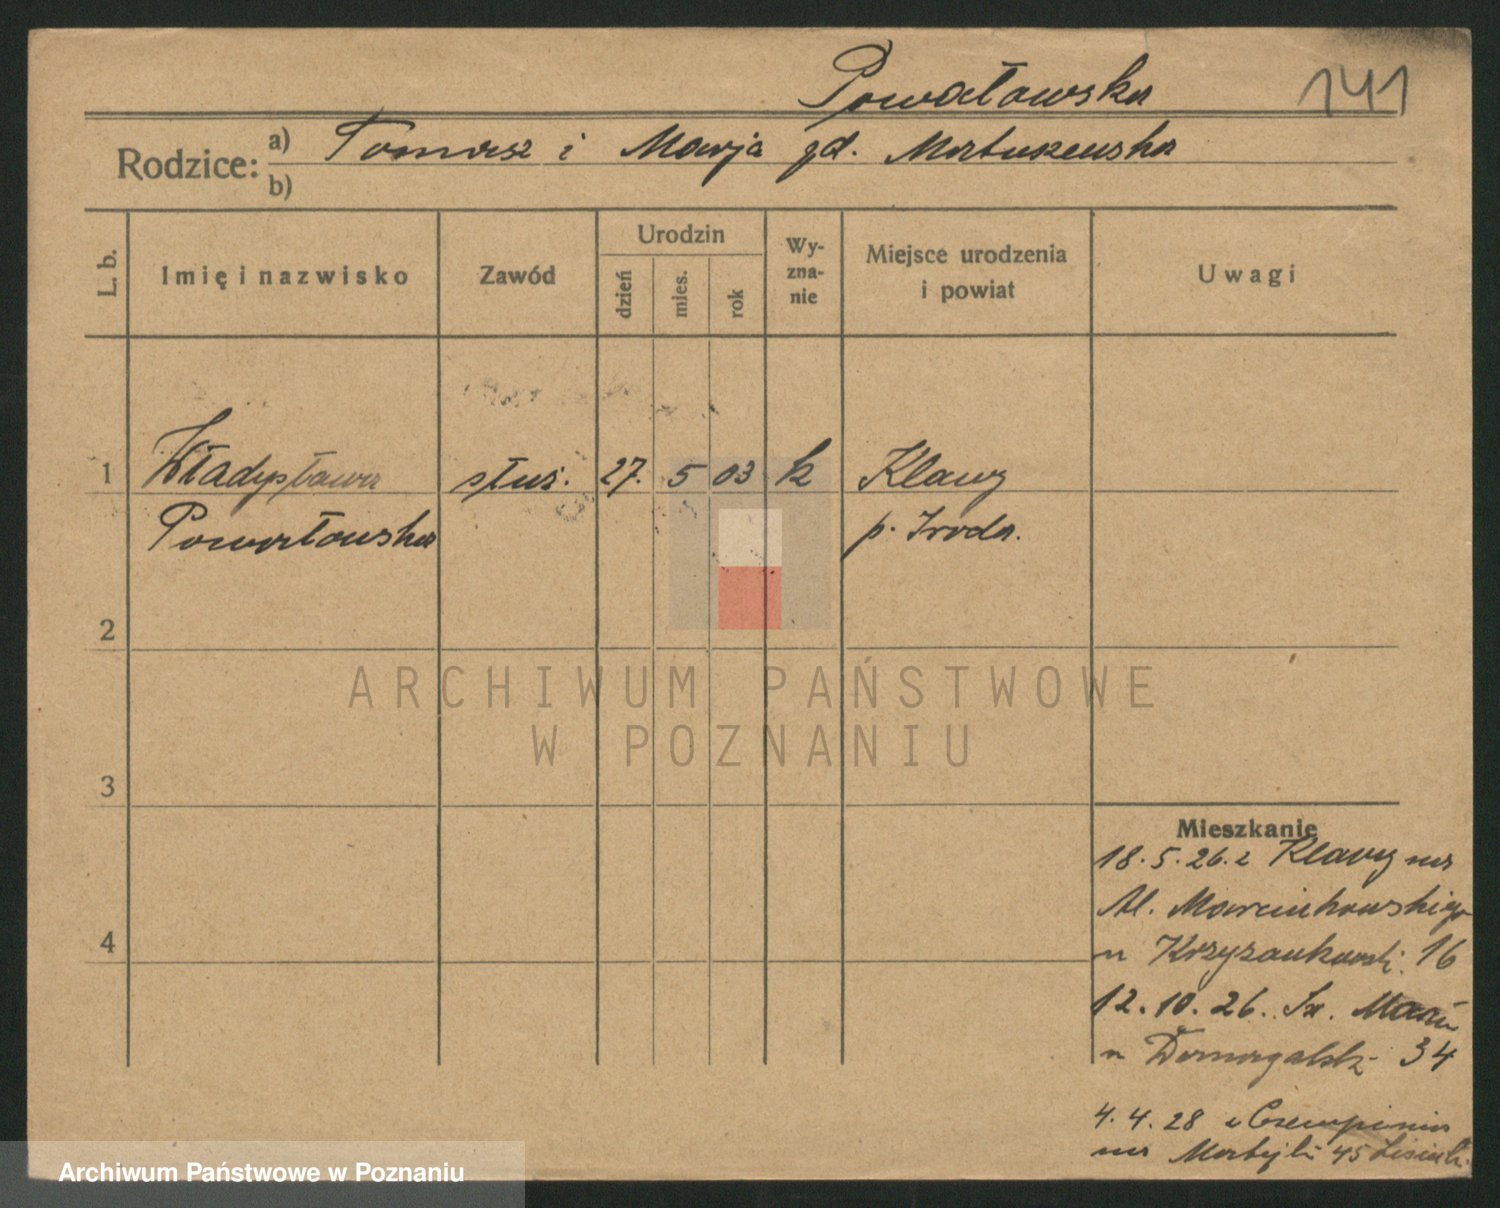 Powałowska
141
Rodzice: a) Tomasz i Marja zd. Matuszewska
b)
L. b.
Imię i nazwisko
Zawód
Urodzin
dzień
mies.
rok
Wy-
zna-
nie
Miejsce urodzenia
i powiat
Uwagi
1 Władysława służ. 27. 5 03 k Klawy
Powałowska p. Środa.
2
ARCHIWUM PAŃSTWOWE
W POZNANIU
3
Mieszkanie
18.5.26. z Klawy na
Al. Marcinkowskiego
4
u Krzyżankowski 16
12.10.26. Św. Marcin
u 34
4.4.28 z Czempinia
na Matejki 45
Archiwum Państwowe w Poznaniu